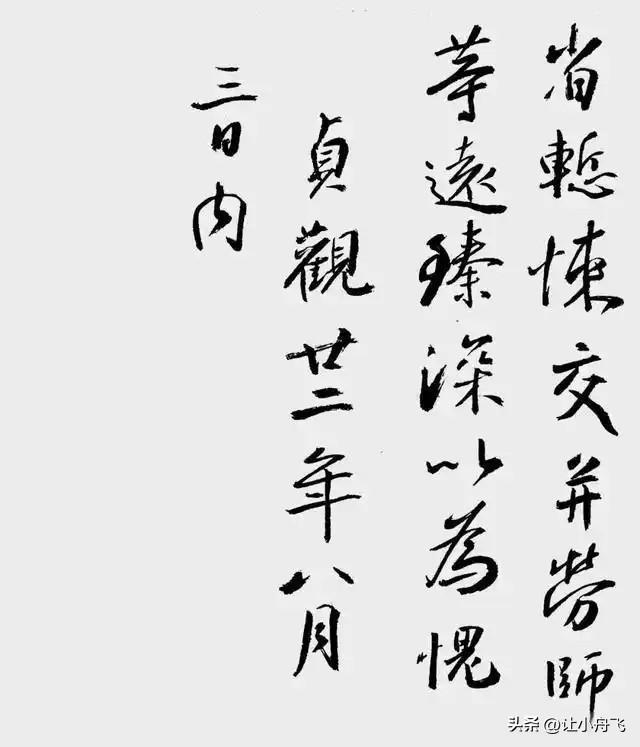 省慙悚交并勞師
等遠臻深以為愧
貞觀廿二年八月
三日内
头条 @让小舟飞